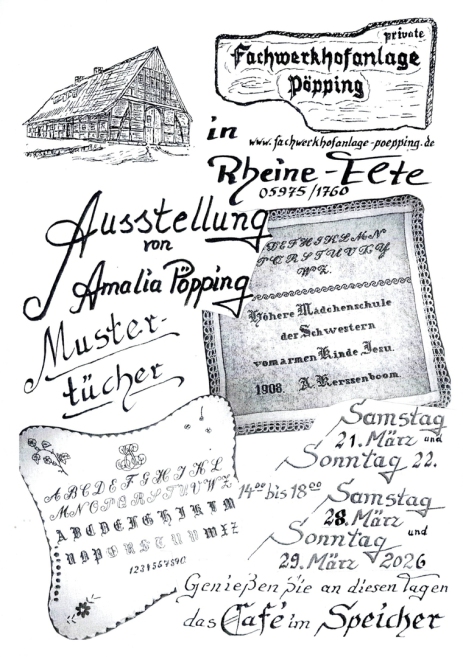 private
Fachwerkhofanlage
Pöpping
in
www.fachwerkhofanlage-poepping.de
Rheine-Elte
05975/1760
Ausstellung
von
Amalia Pöpping
Muster-
tücher
ABCDEFGHIJKLMN
OPQRSTUVXY
WZ.
Höhere Mädchenschule
der Schwestern
vom armen Kinde Jesu.
1908 A. Kerssenboom
Samstag
21. März und
Sonntag 22.
14 00 bis 18 00
Samstag
28. März
Sonntag und
29. März 2026
ABCDEFGHIJKL
MNOPQRSTUVWZ
ABCDEFGHIKLM
NOPQRSTUVWXZ
1234567890
Genießen Sie an diesen Tagen
das Café im Speicher